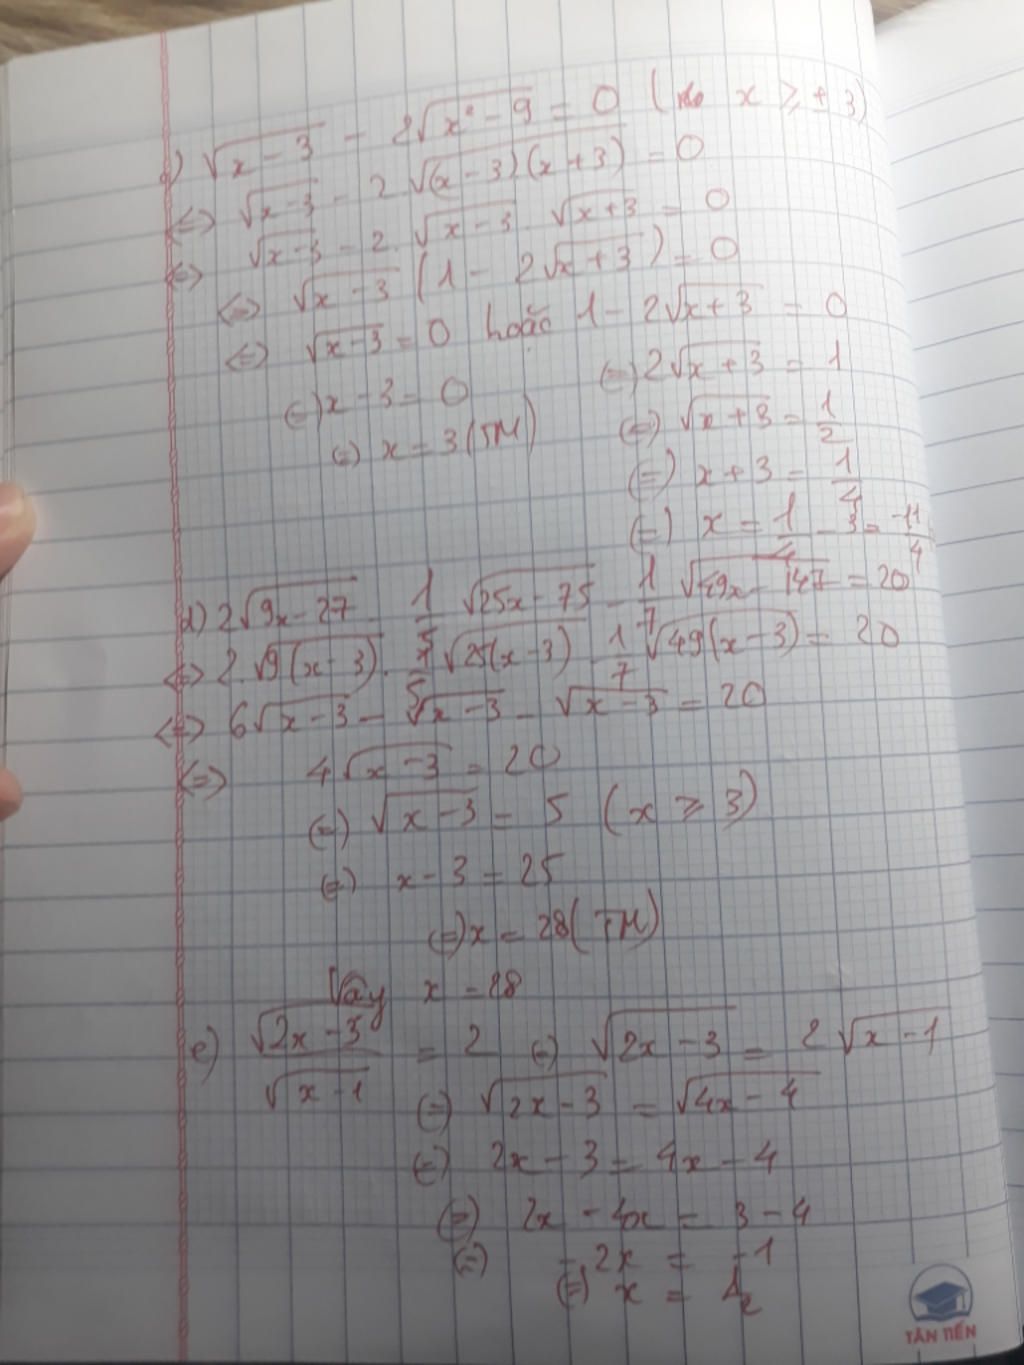 c) √(x-3) - 2√(x²-9) = 0 (do x ≥ ±3)
<=> √(x-3) - 2√((x-3)(x+3)) = 0
<=> √(x-3) - 2.√(x-3).√(x+3) = 0
<=> √(x-3) (1 - 2√(x+3)) = 0
<=> √(x-3) = 0 hoặc 1 - 2√(x+3) = 0
(=) x - 3 = 0 (=) 2√(x+3) = 1
(=) x = 3 (TM) (=) √(x+3) = 1/2
(=) x + 3 = 1/4
(=) x = 1/4 - 3 = -11/4
d) 2√(9x-27) - 1/5 √(25x-75) - 1/7 √(49x-147) = 20
<=> 2.√(9(x-3)) - 1/5 √(25(x-3)) - 1/7 √(49(x-3)) = 20
<=> 6√(x-3) - √(x-3) - √(x-3) = 20
<=> 4√(x-3) = 20
(=) √(x-3) = 5 (x ≥ 3)
(=) x - 3 = 25
(=) x = 28 (TM)
Vậy x = 28
e) √(2x-3)/√(x-1) = 2 (=) √(2x-3) = 2√(x-1)
(=) √(2x-3) = √(4x-4)
(=) 2x - 3 = 4x - 4
(=) 2x - 4x = 3 - 4
(=) -2x = -1
(=) x = 1/2
TÂN TIẾN